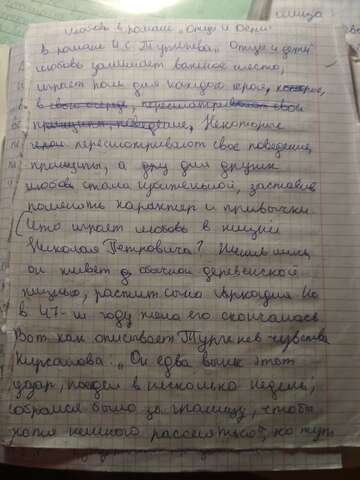 Любовь в романе „Отцы и Дети"
В романе И.С. Тургенева „Отцы и дети"
любовь занимает важное место,
играет роль для каждого героя, которое,
в свою очередь, пересматривают свои
принципы, поведение, Некоторые
герои пересматривают своё поведение,
принципы, а дру для других
любовь стала губительной, заставив
поменять характер и привычки.
Что играет любовь в жизни
Николая Петровича?
он живёт обычной деревенской
жизнью, растит сына Аркадия Но
в 47-м году жена его скончалась
Вот как описывает Тургенев чувства
Кирсанова: „Он едва вынес этот
удар, поседел в несколько недель;
собрался было за границу, чтобы
хотя немного рассеяться", но тут